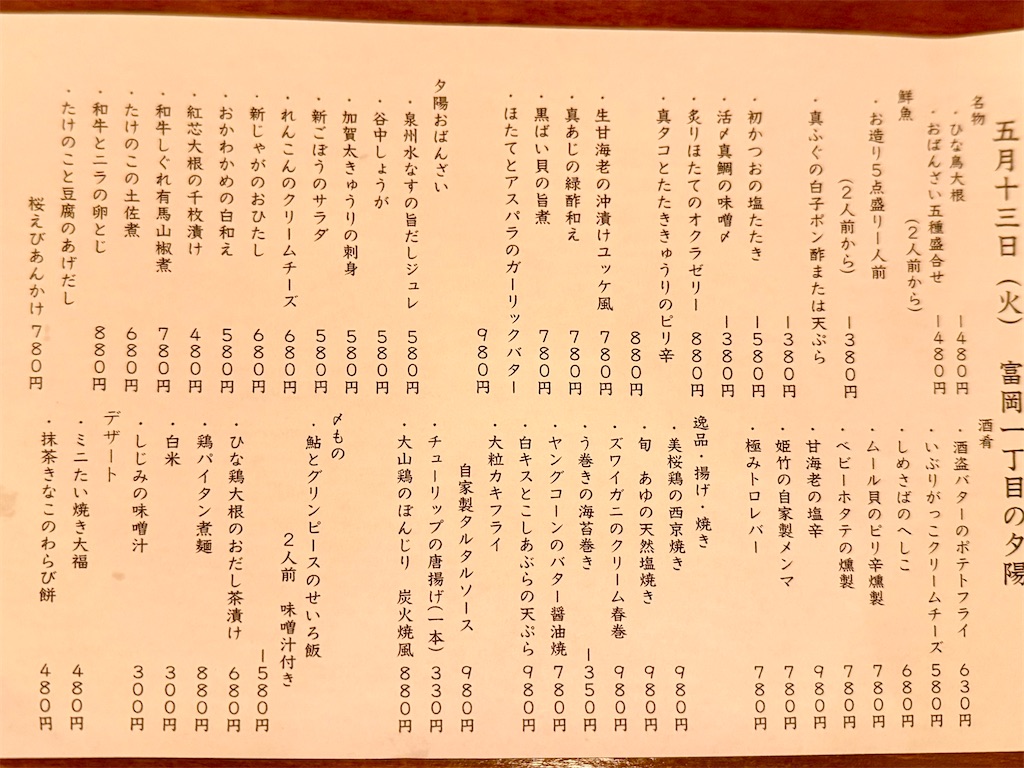 五月十三日（火） 富岡一丁目の夕陽
名物
・ひな鳥大根 一480円
・おばんざい五種盛合せ
（２人前から） 一480円
鮮魚
・お造り５点盛り一人前
（２人前から） 一380円
・真ふぐの白子ポン酢または天ぷら
一380円
・初かつおの塩たたき 一580円
・活〆真鯛の味噌〆 一380円
・炙りほたてのオクラゼリー 880円
・真タコとたたききゅうりのピリ辛
880円
・生甘海老の沖漬けユッケ風 780円
・真あじの緑酢和え 780円
・黒ばい貝の旨煮 780円
・ほたてとアスパラのガーリックバター
980円
夕陽おばんざい
・泉州水なすの旨だしジュレ 580円
・谷中しょうが 580円
・加賀太きゅうりの刺身 580円
・新ごぼうのサラダ 580円
・れんこんのクリームチーズ 680円
・新じゃがのおひたし 680円
・おかわかめの白和え 580円
・紅芯大根の千枚漬け 480円
・和牛しぐれ有馬山椒煮 780円
・たけのこの土佐煮 680円
・和牛とニラの卵とじ 880円
・たけのこと豆腐のあげだし
桜えびあんかけ 780円
酒肴
・酒盗バターのポテトフライ 630円
・いぶりがっこクリームチーズ 580円
・しめさばのへしこ 680円
・ムール貝のピリ辛燻製 780円
・ベビーホタテの燻製 780円
・甘海老の塩辛 980円
・姫竹の自家製メンマ 780円
・極みトロレバー 780円
逸品・揚げ・焼き
・美桜鶏の西京焼き 980円
・旬 あゆの天然塩焼き 980円
・ズワイガニのクリーム春巻 980円
・う巻きの海苔巻き 一350円
・ヤングコーンのバター醤油焼 780円
・白キスとこしあぶらの天ぷら 980円
・大粒カキフライ
自家製タルタルソース 980円
・チューリップの唐揚げ（一本） 330円
・大山鶏のぼんじり 炭火焼風 880円
〆もの
・鮎とグリンピースのせいろ飯
２人前 味噌汁付き
一580円
・ひな鶏大根のおだし茶漬け 680円
・鶏パイタン煮麺 880円
・白米 300円
・しじみの味噌汁 300円
デザート
・ミニたい焼き大福 480円
・抹茶きなこのわらび餅 480円